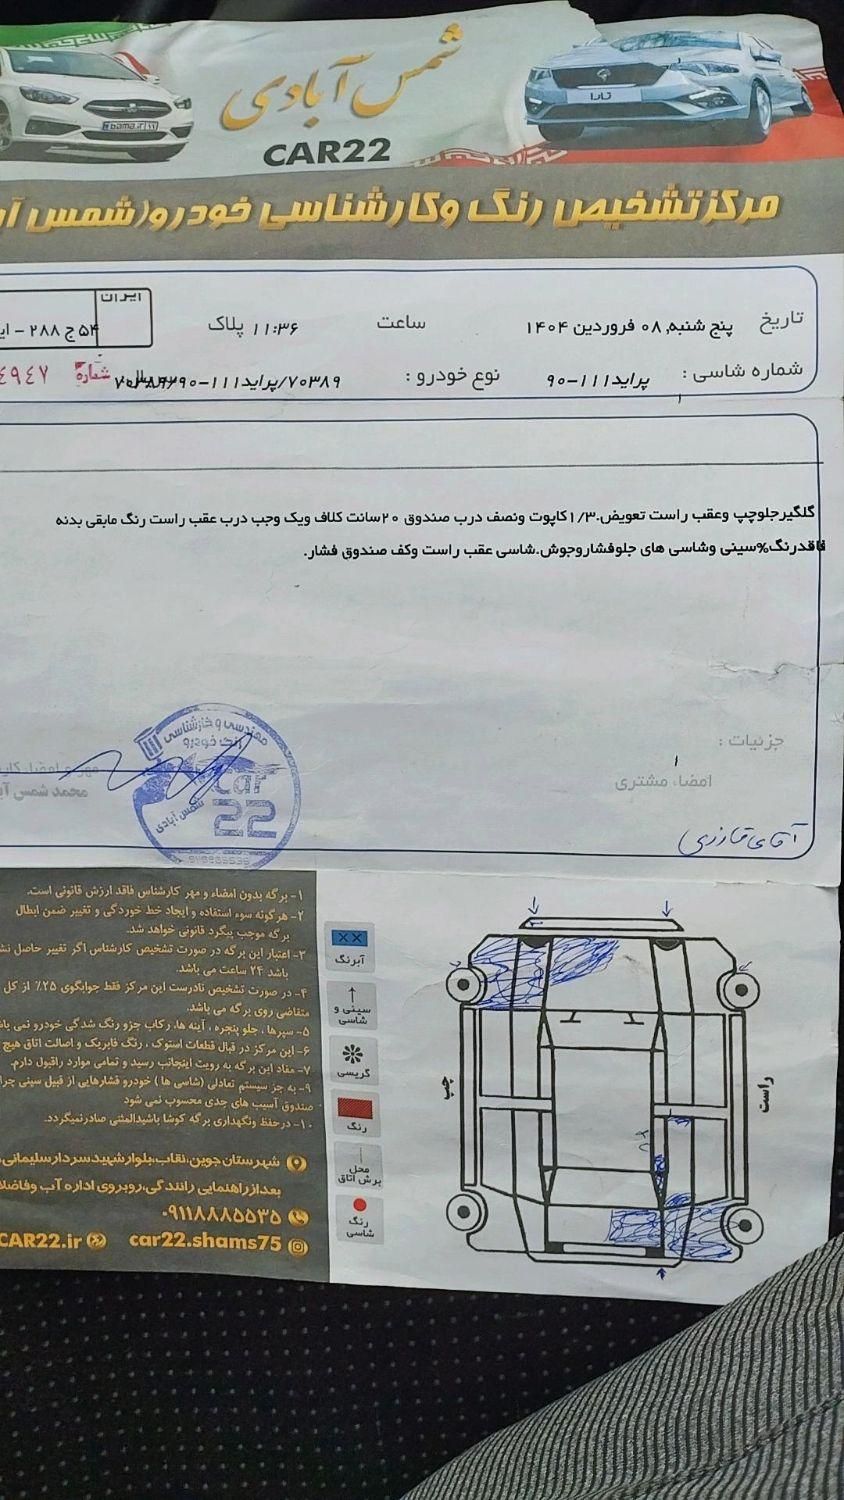 شمس آبادی
CAR22
تارا
bama.ir
مرکز تشخیص رنگ وکارشناسی خودرو(شمس آ
تاریخ پنج شنبه, ۰۸ فروردین ۱۴۰۴ ساعت ۱۱:۳۶ پلاک ایران ۵۴ ج ۲۸۸ - ایر
شماره شاسی : پراید۱۱۱-۹۰ نوع خودرو : ۷۰۳۸۹/پراید۱۱۱-۹۰ شماره ۴۹۴۷
گلگیرجلوچپ وعقب راست تعویض.۱/۳کاپوت ونصف درب صندوق ۲۰سانت کلاف ویک وجب درب عقب راست رنگ مابقی بدنه
فاقدرنگ%سینی وشاسی های جلوفشاروجوش.شاسی عقب راست وکف صندوق فشار.
جزئیات :
امضاء مشتری
مهر و امضا کار
محمد شمس آبا
آقای قارزی
مهندسی و کارشناسی
رنگ خودرو
Car
22
شمس آبادی
۱- برگه بدون امضاء و مهر کارشناس فاقد ارزش قانونی است.
۲- هرگونه سوء استفاده و ایجاد خط خوردگی و تغییر ضمن ابطال
برگه موجب پیگرد قانونی خواهد شد.
۳- اعتبار این برگه در صورت تشخیص کارشناس اگر تغییر حاصل نش
باشد ۲۴ ساعت می باشد.
۴- در صورت تشخیص نادرست این مرکز فقط جوابگوی ۲۵٪ از کل
متقاضی روی برگه می باشد.
۵- سپرها ، جلو پنجره ، آینه ها، رکاب جزو رنگ شدگی خودرو نمی باش
۶- این مرکز در قبال قطعات استوک ، رنگ فابریک و اصالت اتاق هیچ
۷- مفاد این برگه به رویت اینجانب رسید و تمامی موارد راقبول دارم.
۹- به جز سیستم تعادلی (شاسی ها ) خودرو فشارهایی از قبیل سینی چرا
صندوق آسیب های جدی محسوب نمی شود
۱۰- درحفظ ونگهداری برگه کوشا باشیدالمثنی صادرنمیگردد.
شهرستان جوین،نقاب،بلوارشهیدسردارسلیمانی،
بعدازراهنمایی رانندگی،روبروی اداره آب وفاضلا
۰۹۱۱۸۸۸۵۵۳۵
CAR22.ir car22.shams75
آبرنگ
سینی و
شاسی
گریسی
رنگ
محل
برش اتاق
رنگ
شاسی
چپ
راست